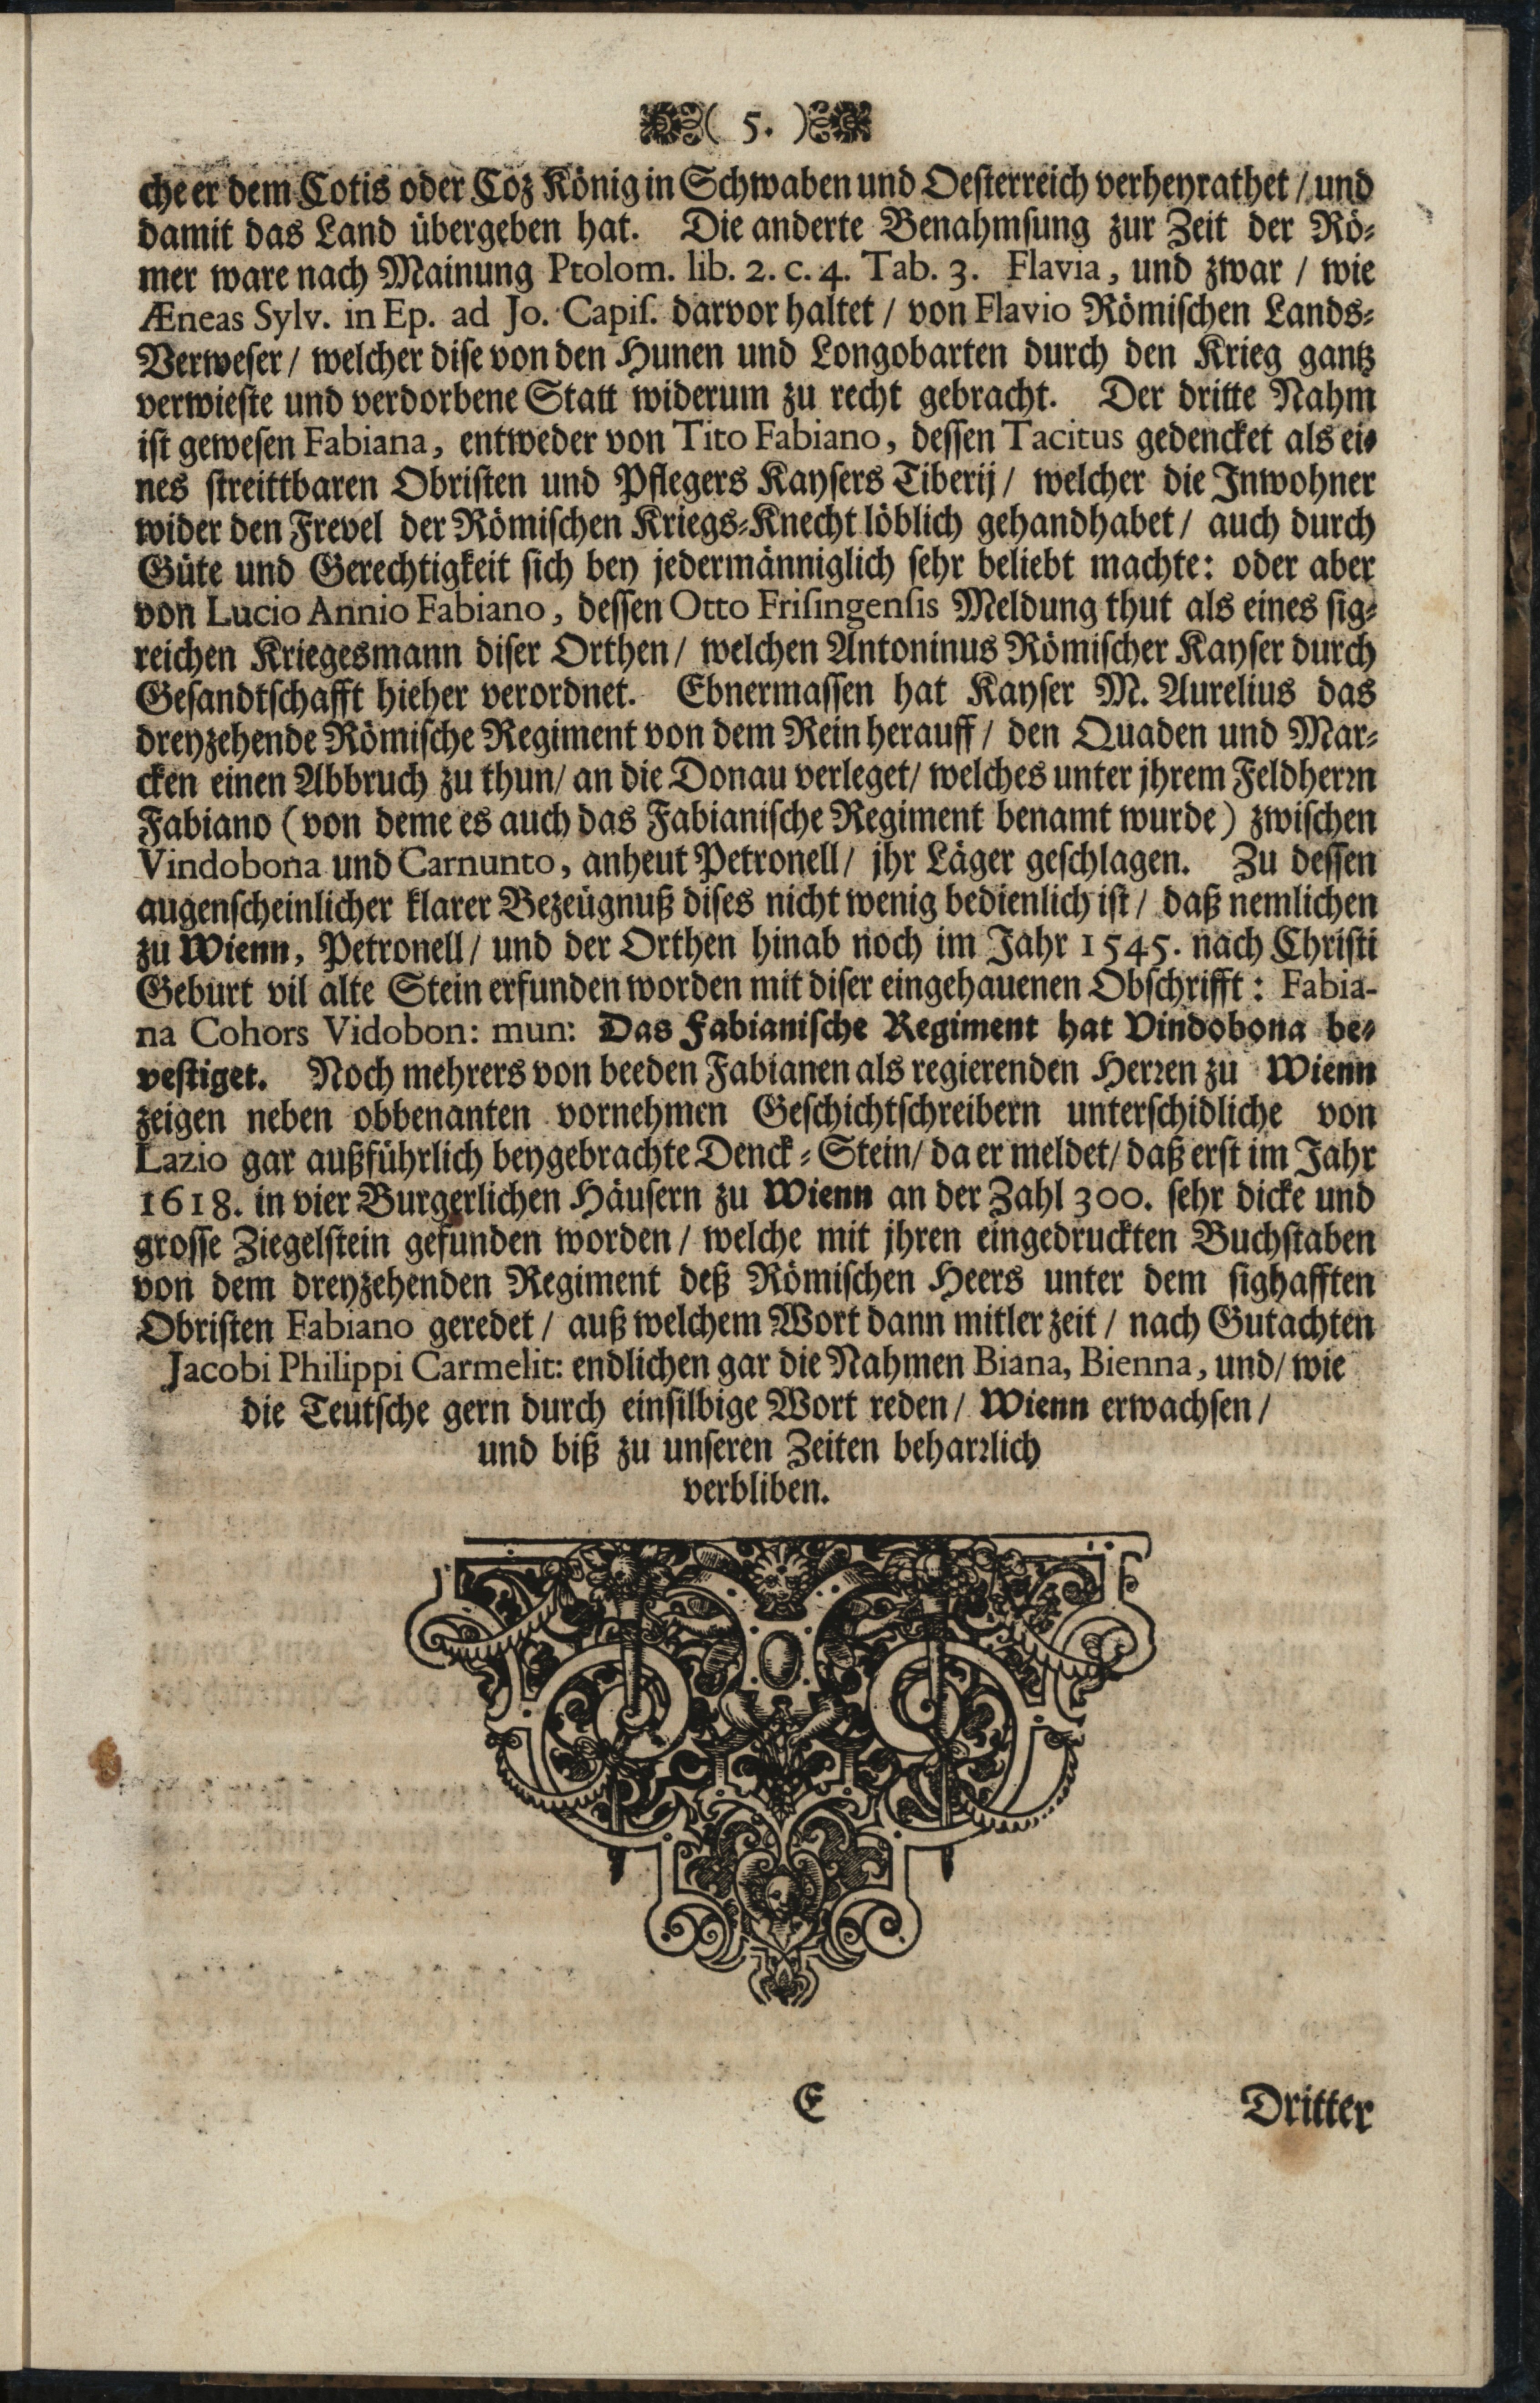 ( 5. )
che er dem Cotis oder Coz König in Schwaben und Oesterreich verheyrathet / und
damit das Land übergeben hat. Die anderte Benahmsung zur Zeit der Rö-
mer ware nach Mainung Ptolom. lib. 2. c. 4. Tab. 3. Flavia, und zwar / wie
Æneas Sylv. in Ep. ad Jo. Capis. darvor haltet / von Flavio Römischen Lands-
Verweser / welcher dise von den Hunen und Longobarten durch den Krieg gantz
verwieste und verdorbene Statt widerum zu recht gebracht. Der dritte Nahm
ist gewesen Fabiana, entweder von Tito Fabiano, dessen Tacitus gedencket als ei-
nes streittbaren Obristen und Pflegers Kaysers Tiberij / welcher die Inwohner
wider den Frevel der Römischen Kriegs-Knecht löblich gehandhabet / auch durch
Güte und Gerechtigkeit sich bey jedermänniglich sehr beliebt machte: oder aber
von Lucio Annio Fabiano, dessen Otto Frisingensis Meldung thut als eines sig-
reichen Kriegesmann diser Orthen / welchen Antoninus Römischer Kayser durch
Gesandtschafft hieher verordnet. Ebnermassen hat Kayser M. Aurelius das
dreyzehende Römische Regiment von dem Rein herauff / den Quaden und Mar-
cken einen Abbruch zu thun / an die Donau verleget / welches unter jhrem Feldherrn
Fabiano (von deme es auch das Fabianische Regiment benamt wurde) zwischen
Vindobona und Carnunto, anheut Petronell / jhr Läger geschlagen. Zu dessen
augenscheinlicher klarer Bezeügnuß dises nicht wenig bedienlich ist / daß nemlichen
zu Wienn, Petronell / und der Orthen hinab noch im Jahr 1545. nach Christi
Geburt vil alte Stein erfunden worden mit diser eingehauenen Obschrifft: Fabia-
na Cohors Vidobon: mun: Das Fabianische Regiment hat Vindobona be-
vestiget. Noch mehrers von beeden Fabianen als regierenden Herren zu Wienn
zeigen neben obbenanten vornehmen Geschichtschreibern unterschidliche von
Lazio gar außführlich beygebrachte Denck-Stein / da er meldet / daß erst im Jahr
1618. in vier Burgerlichen Häusern zu Wienn an der Zahl 300. sehr dicke und
grosse Ziegelstein gefunden worden / welche mit jhren eingedruckten Buchstaben
von dem dreyzehenden Regiment deß Römischen Heers unter dem sighafften
Obristen Fabiano geredet / auß welchem Wort dann mitler zeit / nach Gutachten
Jacobi Philippi Carmelit: endlichen gar die Nahmen Biana, Bienna, und / wie
die Teutsche gern durch einsilbige Wort reden / Wienn erwachsen /
und biß zu unseren Zeiten beharrlich
verbliben.
E Dritter